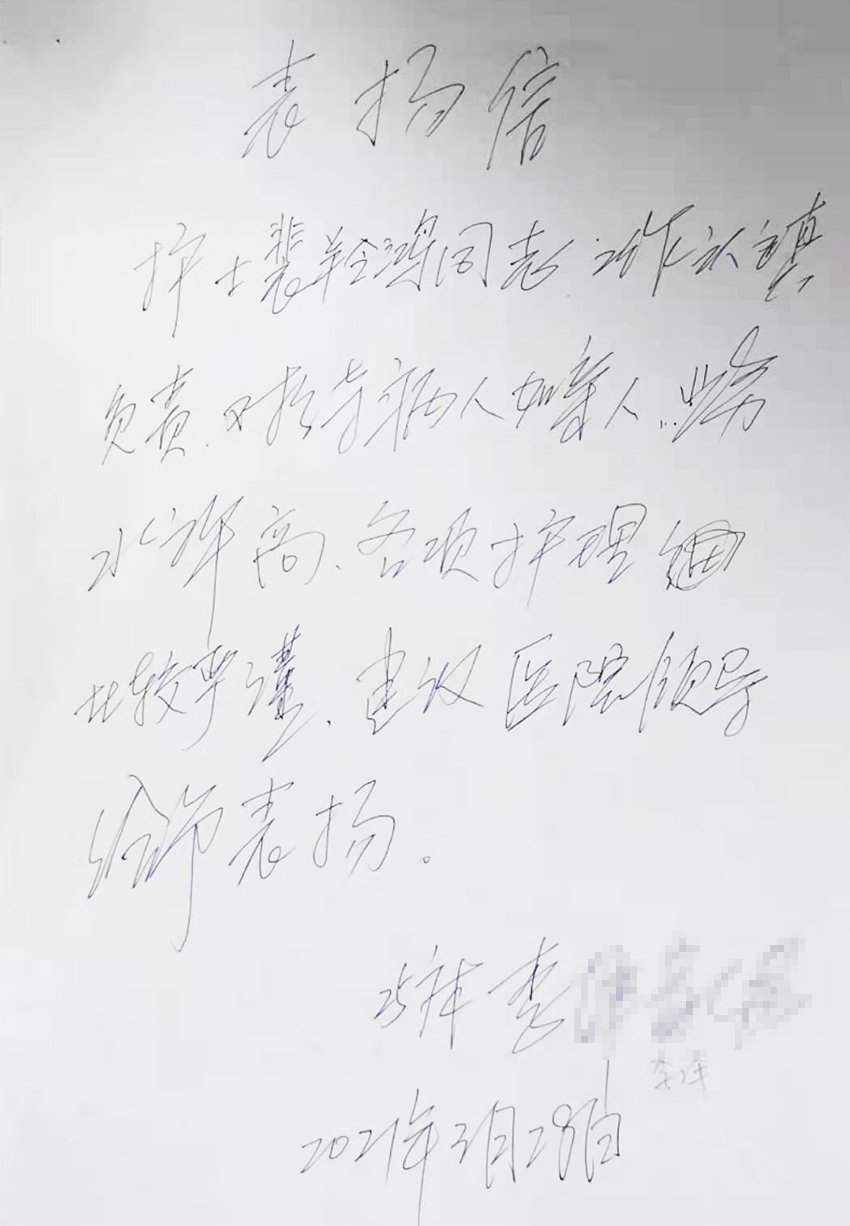 表扬信
护士裴羚鸿同志工作认真
负责.对待病人如亲人.业务
水评高、各项护理
比较严谨、建议医院领导
给予表扬。
25床李
2021年3月28日